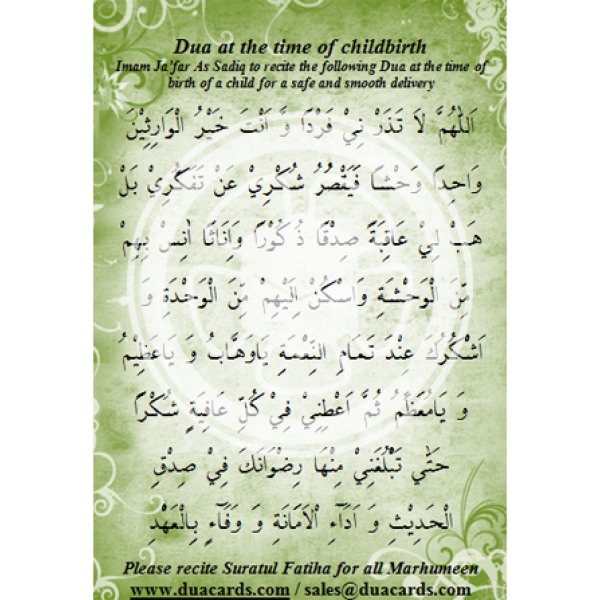 Dua at the time of childbirth
Imam Ja'far As Sadiq to recite the following Dua at the time of
birth of a child for a safe and smooth delivery
اَللّٰهُمَّ لَا تَذَرْ نِيْ فَرْدًا وَّ اَنْتَ خَيْرُ الْوَارِثِيْنَ
وَاحِدًا وَحْشًا فَيَقْصُرُ شُكْرِيْ عَنْ تَفَكُّرِيْ بَلْ
هَبْ لِيْ عَاقِبَةً صِدْقًا ذُكُوْرًا وَاِنَاثًا اٰنِسْ بِهِمْ
مِّنَ الْوَحْشَةِ وَاَسْكُنْ اِلَيْهِمْ مِّنَ الْوَحْدَةِ وَ
اَشْكُرُكَ عِنْدَ تَمَامِ النِّعْمَةِ يَاوَهَّابُ وَ يَاعَظِيْمُ
وَ يَامُعَظِّمُ ثُمَّ اَعْطِنِيْ فِيْ كُلِّ عَافِيَةٍ شُكْرًا
حَتّٰي تَبْلُغَنِيْ مِنْهَا رِضْوَانَكَ فِيْ صِدْقِ
الْحَدِيْثِ وَ اَدَآءِ الْاَمَانَةِ وَ وَفَآءٍ بِالْعَهْدِ
Please recite Suratul Fatiha for all Marhumeen
www.duacards.com / sales@duacards.com